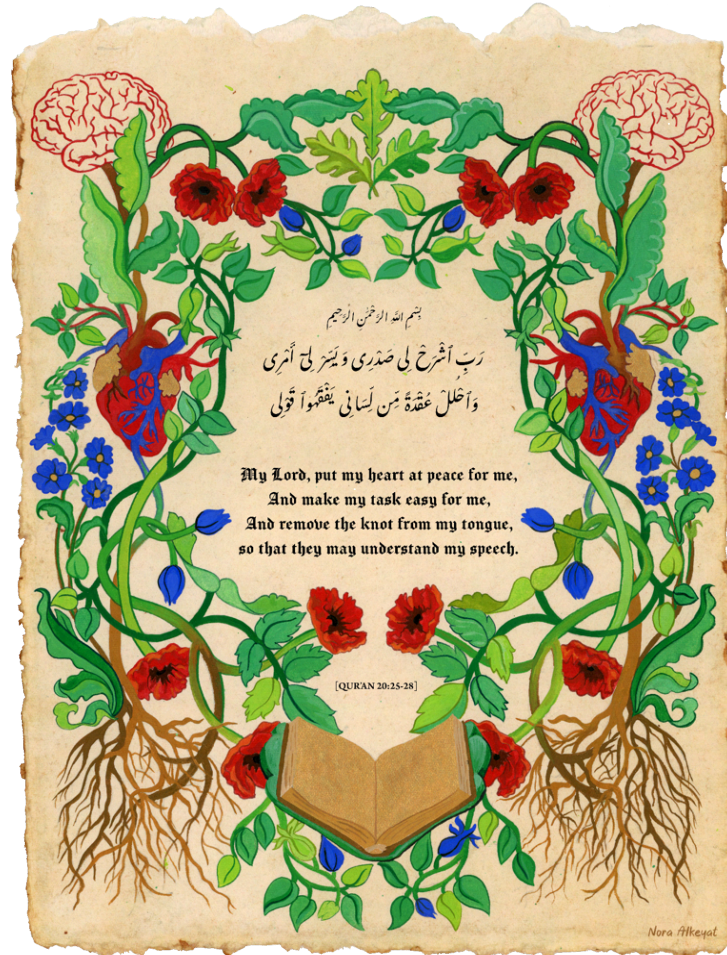 بِسْمِ اللَّهِ الرَّحْمَٰنِ الرَّحِيمِ
رَبِّ ٱشْرَحْ لِى صَدْرِى وَيَسِّرْ لِىٓ أَمْرِى
وَٱحْلُلْ عُقْدَةً مِّن لِّسَانِى يَفْقَهُوا۟ قَوْلِى
My Lord, put my heart at peace for me,
And make my task easy for me,
And remove the knot from my tongue,
so that they may understand my speech.
[QUR'AN 20:25-28]
Nora Alkeyat